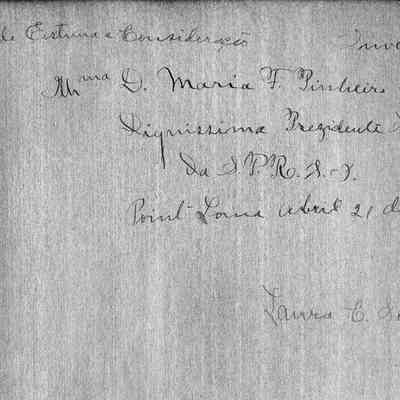 de Estima e Consideração
Illma D. Maria F. Pinheiro
Dignissima Prezidente
da S.P.R.S.I.
Point Loma Abril 21 de
Laura E.